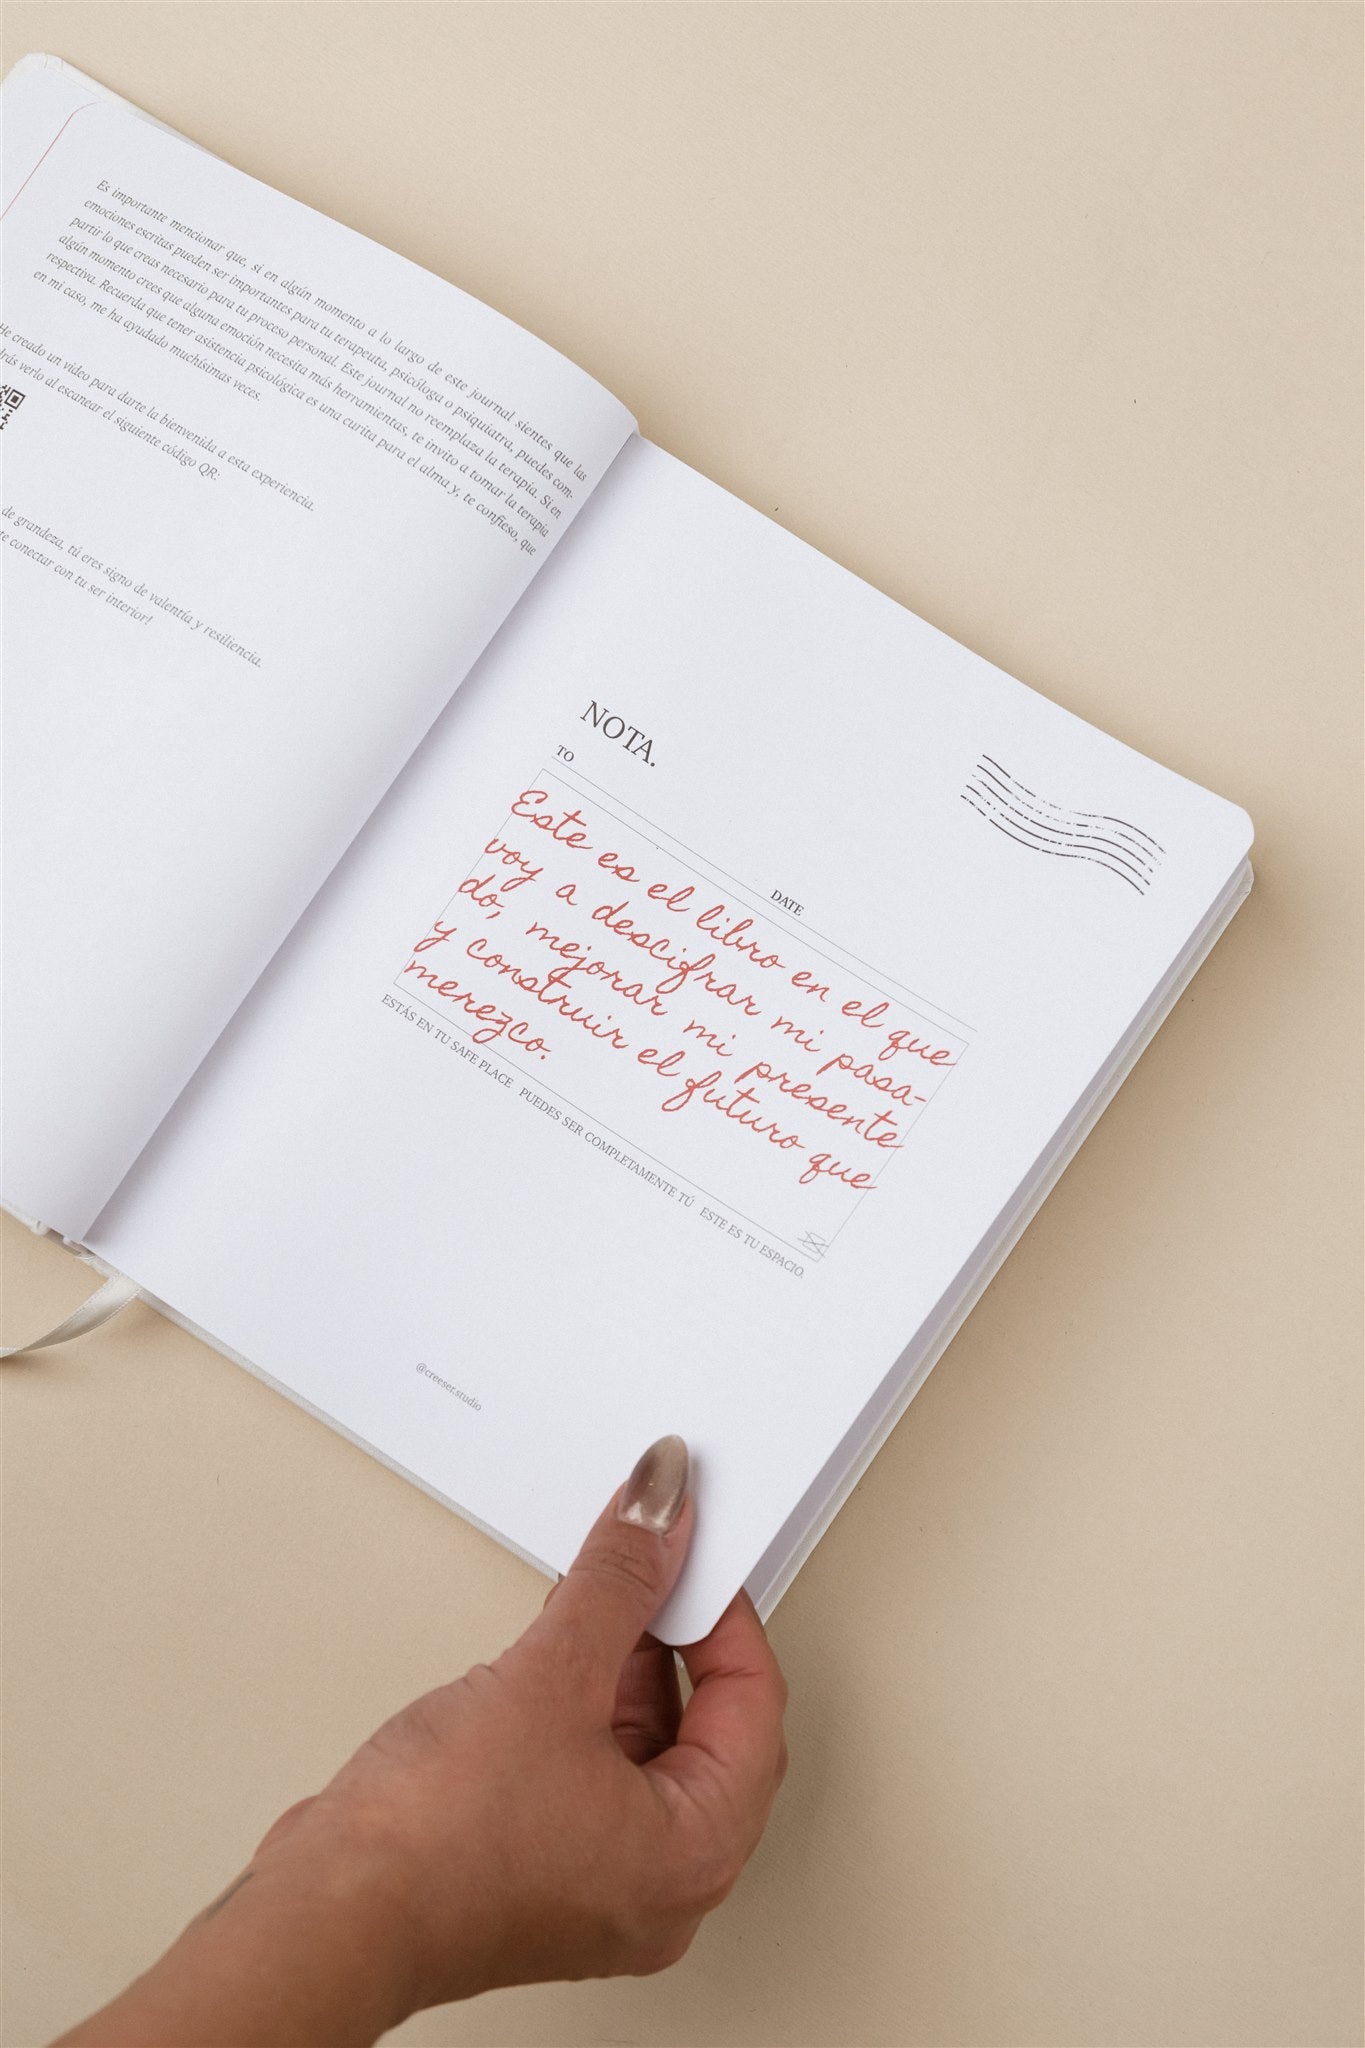 Es importante mencionar que, si en algún momento a lo largo de este journal sientes que las
emociones escritas pueden ser importantes para tu terapeuta, psicóloga o psiquiatra, puedes com-
partir lo que creas necesario para tu proceso personal. Este journal no reemplaza la terapia. Si en
algún momento crees que alguna emoción necesita más herramientas, te invito a tomar la terapia
respectiva. Recuerda que tener asistencia psicológica es una curita para el alma y, te confieso, que
en mi caso, me ha ayudado muchísimas veces.
He creado un video para darte la bienvenida a esta experiencia.
drás verlo al escanear el siguiente código QR:
de grandeza, tú eres signo de valentía y resiliencia.
te conectar con tu ser interior!
NOTA.
TO
DATE
Este es el libro en el que
voy a descifrar mi pasa-
do, mejorar mi presente
y construir el futuro que
merezco.
ESTÁS EN TU SAFE PLACE PUEDES SER COMPLETAMENTE TÚ ESTE ES TU ESPACIO.
@creeser.studio